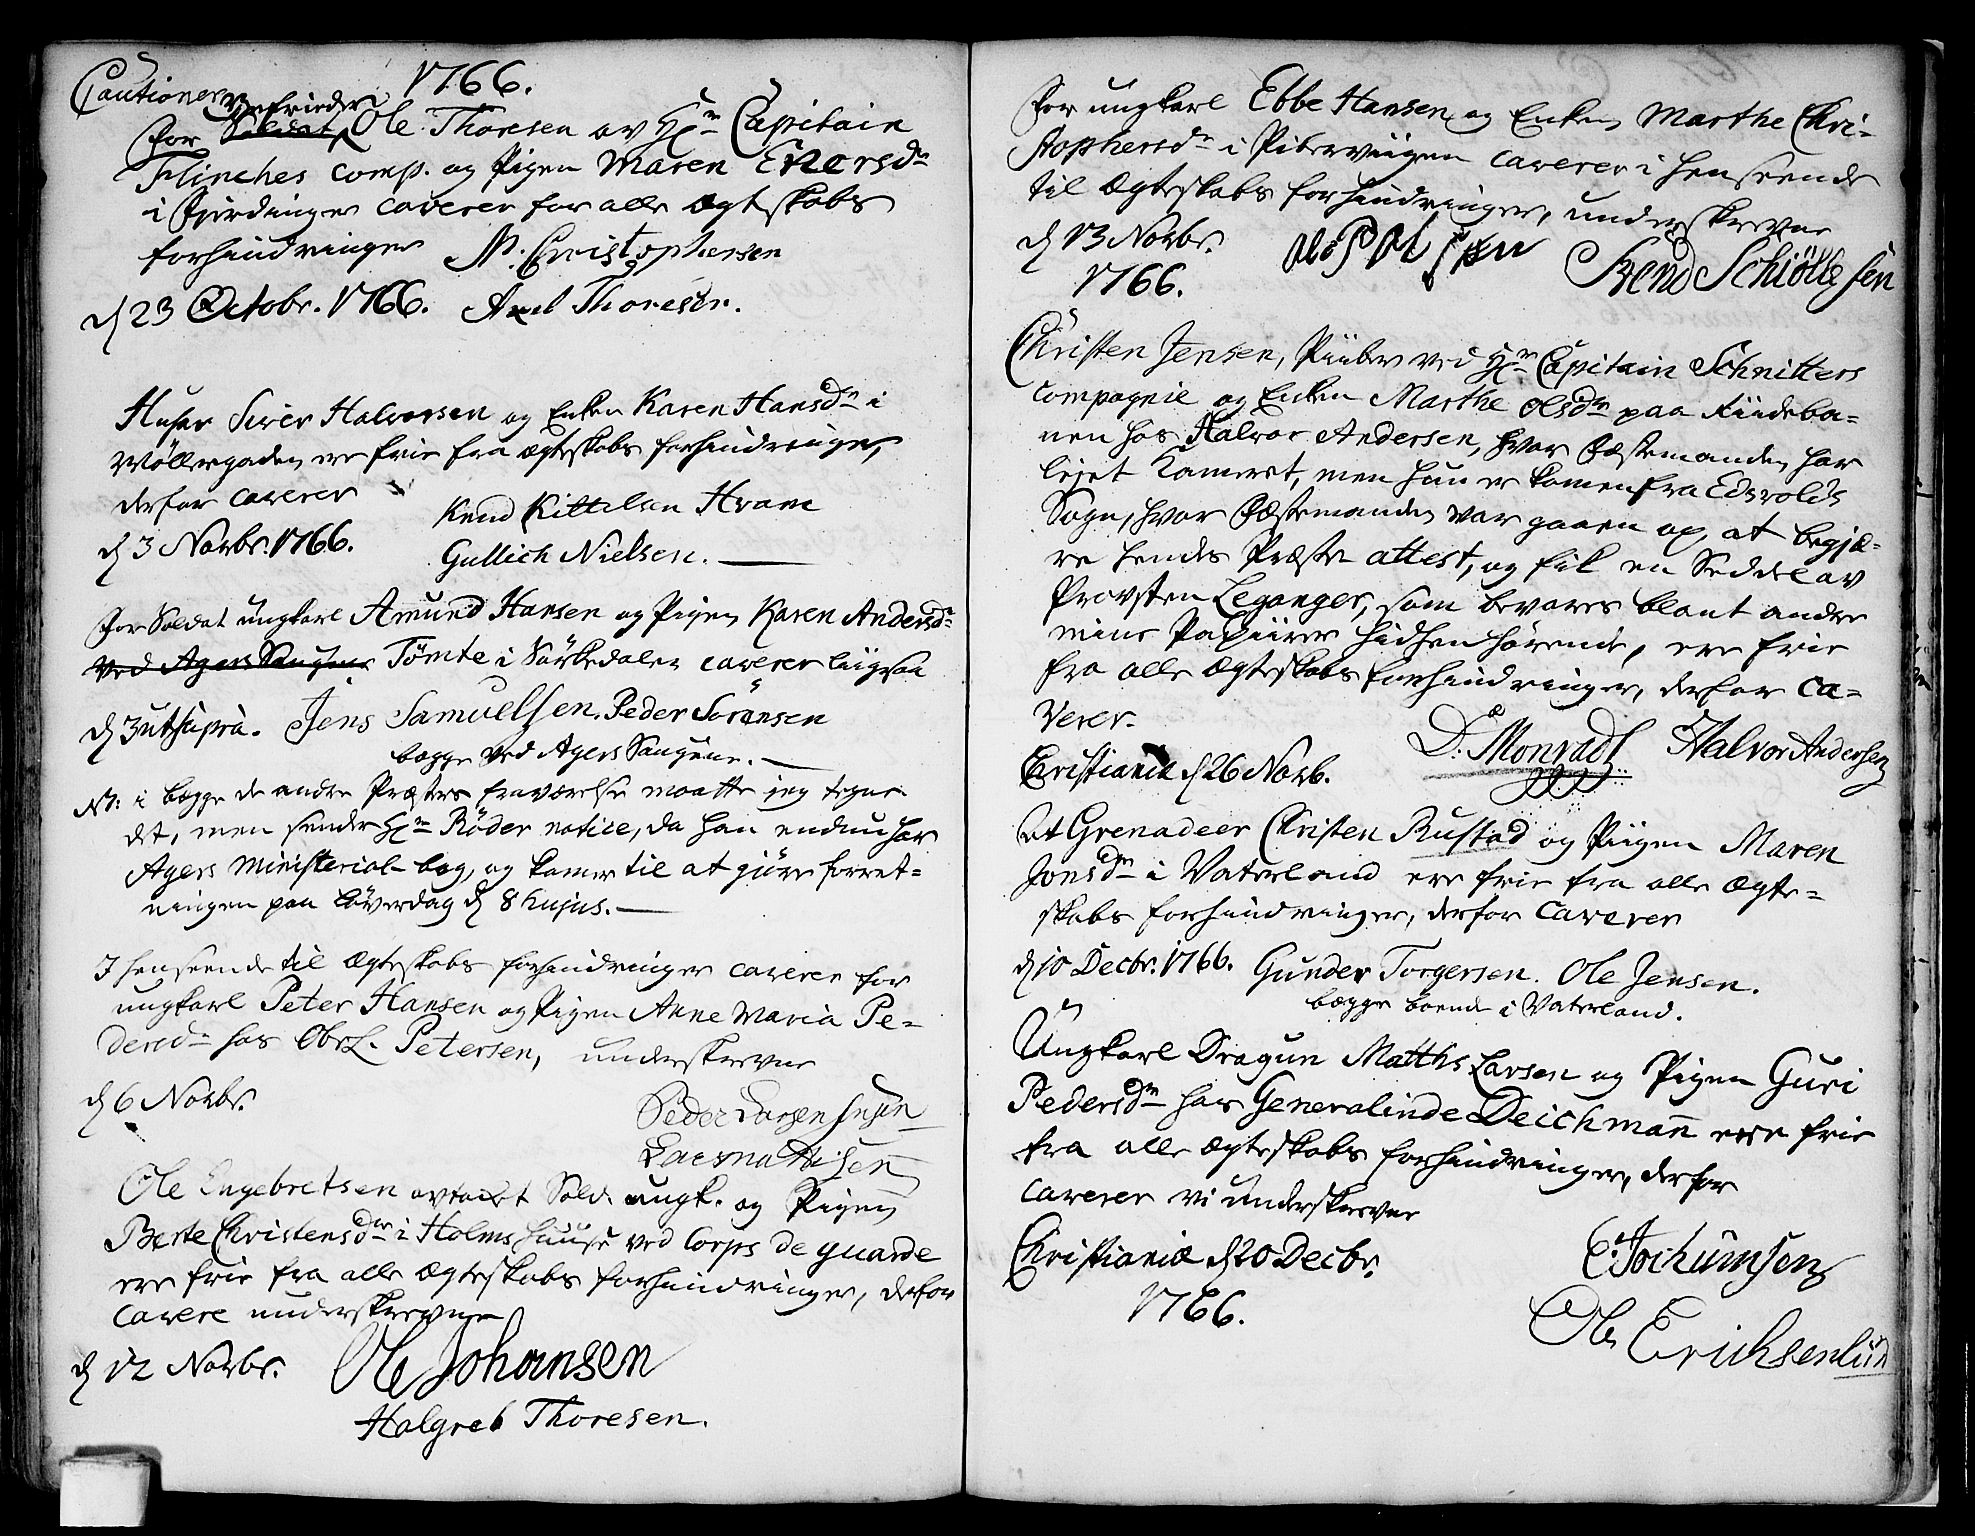 Cautioner 1766.
for Soldat Ole Thoresen av Hr. Capitain
Flinches comp. og Pigen Maren Enersdr.
i Fierdingen caverer for alle Ægteskabs
forhindringer N. Christophersen
d 23 Octobr. 1766. Axel Thoresen.
Husar Siver Halvorsen og Enken Karen Hansdr. i
Møllergaden ere frie fra ægteskabs forhindringer,
derfor caverer
Knud Kittelsen
d 3 Novbr. 1766.
Gullich Nielsen.
For Soldat ungkarl Amund Hansen og Pigen Karen Andersdr.
ved Agers Saugene Tömte i Sörkedalen caverer liigesaa
d 3 ut supra. Jens Samuelsen. Peder Sörensen
begge ved Agers Saugene.
i begge de andre Præsters fraværelse maatte jeg tegne
det, men sender Hr. Röder notice, da han endnu har
Agers Ministerial-bog, og kommer til at gjöre forret-
ningen paa Löverdag d 8 hujus.
I henseende til Ægteskabs forhindringer caverer for
ungkarl Peter Hansen og Pigen Anne Maria Pe-
dersdr. hos Petersen, underskrevne
d 6 Novbr.
Peder Larsen
Ole Engebretsen avtakt Sold. ungk. og Pigen
Berte Christensdr. i Holms huuse ved Corps de guarde
ere frie fra alle Ægteskabs forhindringer, derfor
cavere underskrevne
d 12 Novbr. Ole Johansen
Halgreb Thoresen.
For ungkarl Ebbe Hansen og Enken Marthe Chri-
stophersdr. i Piberviigen caverer i henseende
til Ægteskabs forhindringer, underskrevne
d 13 Novbr.
1766. Svend Schiöllesen
Christen Jensen, Piiber ved Hr. Capitain Schnitters
compagnie og Enken Marthe Olsdr. paa Riideba-
nen hos Halvor Andersen, hvor Fæstemanden har
lejet Kameret, men hun er kommen fra Edsvolds
Sogn, hvor Fæstemanden var gaaen op, at begjæ-
re hendes Præste attest, og fik en Seddel av
Provsten Leganger, som bevares blant andre
mine Papiirer hidhenhörende, ere frie
fra alle Ægteskabs forhindringer, derfor ca-
verer.
Christiania d 26 Novb. D: Monrad Halvor Andersen
At Grenadeer Christen Rustad og Piigen Maren
Jonsdr. i Vaterland ere frie fra alle Ægte-
skabs forhindringer, derfor caverer
d 10 Decbr. 1766. Gunder Torgersen. Ole Jensen.
begge boende i Vaterland.
Ungkarl Dragun Matths Larsen og Pigen Guri
Pedersdr. hos Generalinde Deichmann ere frie
fra alle Ægteskabs forhindringer, derfor
caverer vi underskrevne
Christiania d 20 Decbr. C. Jochumsen
1766.
Ole Erichsen Lund